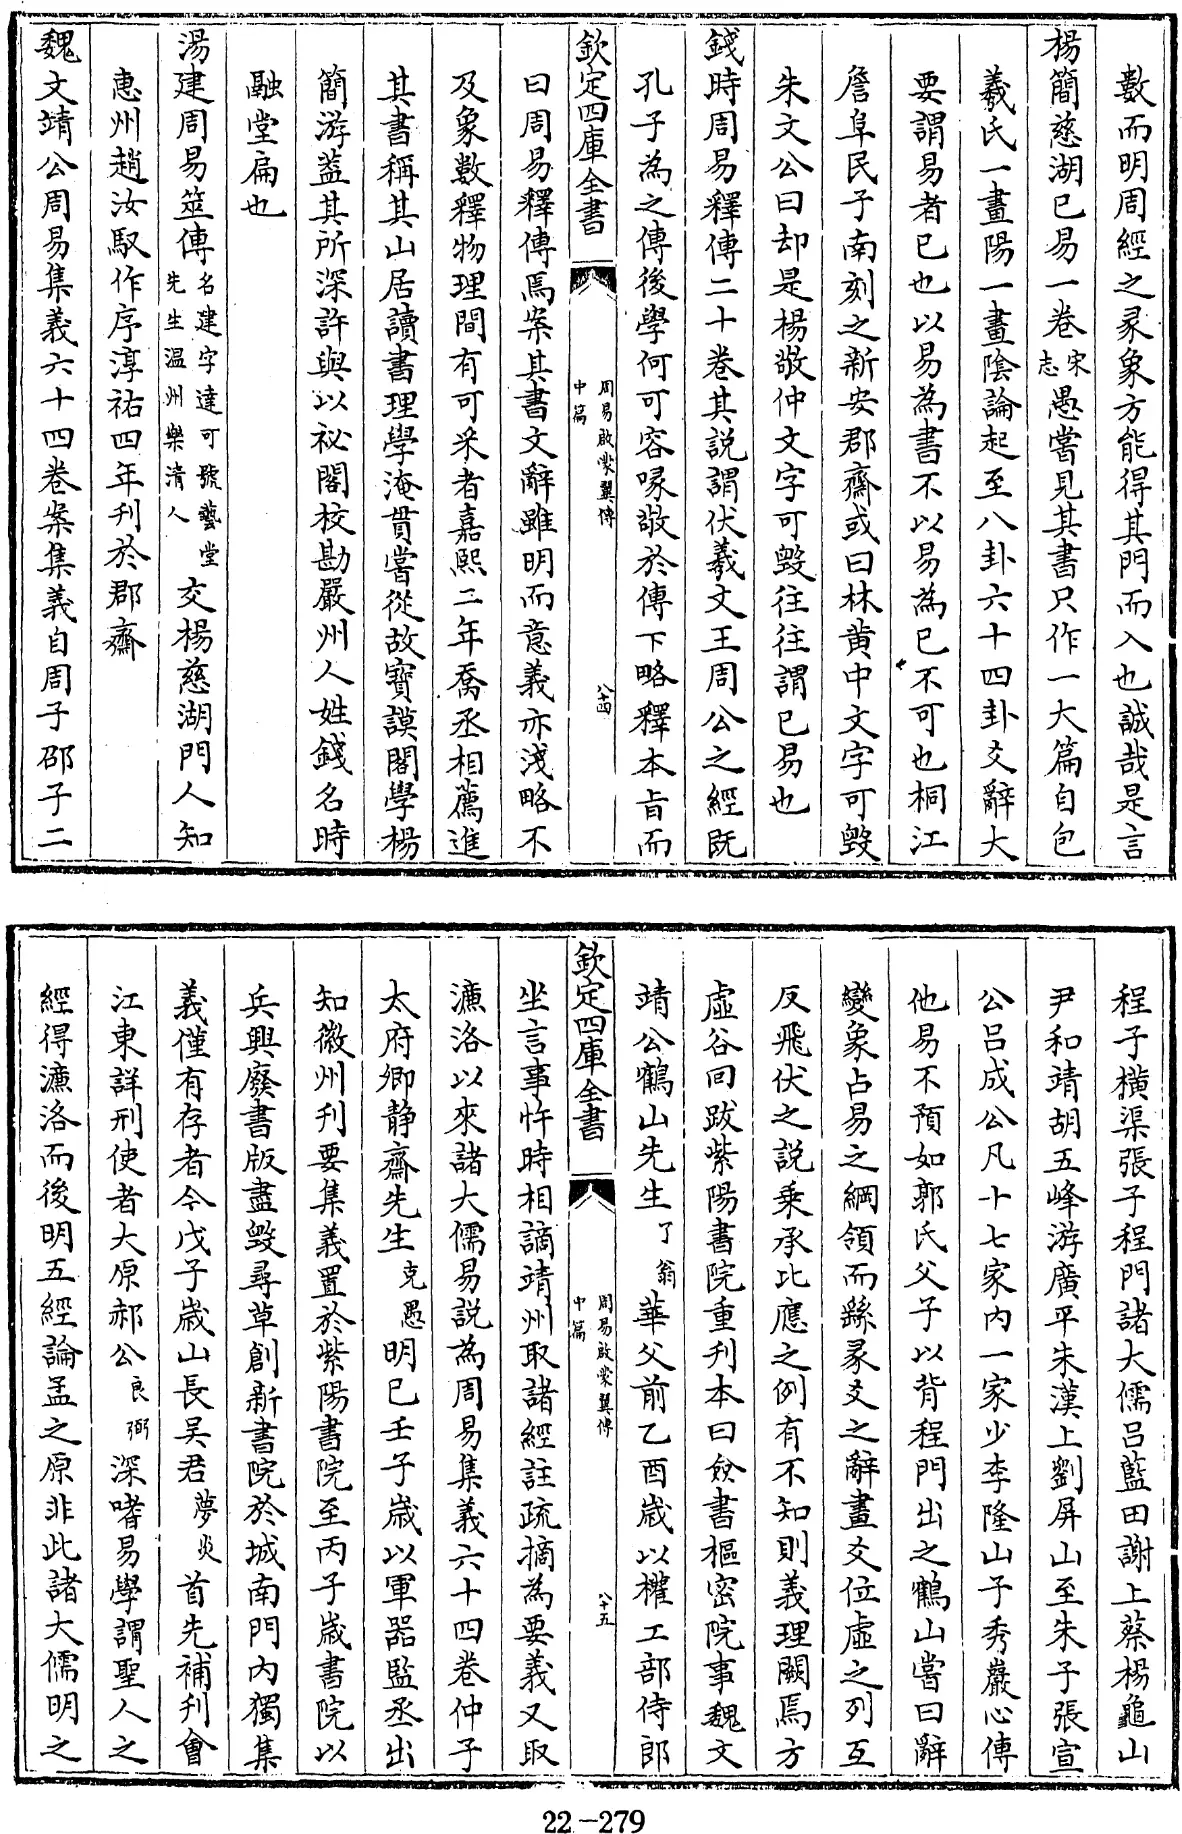 數而明周經之彖象方能得其門而入也誠哉是言
楊簡慈湖已易一卷宋志愚嘗見其書只作一大篇自包
羲氏一畫陽一畫陰論起至八卦六十四卦爻辭大
要謂易者已也以易為書不以易為已不可也桐江
詹阜民子南刻之新安郡齋或曰林黄中文字可毁
朱文公曰却是楊敬仲文字可毁往往謂已易也
錢時周易釋傳二十卷其説謂伏羲文王周公之經既
孔子為之傳後學何可容喙敢於傳下略釋本㫖而
欽定四庫全書
周易啟蒙翼傳
中篇
八十四
曰周易釋傳焉案其書文辭雖明而意義亦淺略不
及象數釋物理間有可采者嘉熙二年喬丞相薦進
其書稱其山居讀書理學淹貫嘗從故寳謨閣學楊
簡游蓋其所深許與以祕閣校勘嚴州人姓錢名時
融堂扁也
湯建周易筮傳名建字達可號藝堂先生温州樂清人交楊慈湖門人知
惠州趙汝馭作序淳祐四年刋於郡齋
魏文靖公周易集義六十四卷案集義自周子邵子二
程子横渠張子程門諸大儒呂藍田謝上蔡楊龜山
尹和靖胡五峰游廣平朱漢上劉屏山至朱子張宣
公呂成公凡十七家内一家少李隆山子秀巖心傳
他易不預如郭氏父子以背程門出之鶴山嘗曰辭
變象占易之綱領而繇彖爻之辭畫爻位虚之列互
反飛伏之説乗承比應之例有不知則義理闕焉方
虚谷回跋紫陽書院重刋本曰僉書樞密院事魏文
靖公鶴山先生了翁華父前乙酉歲以權工部侍郎
欽定四庫全書
周易啟蒙翼傳
中篇
八十五
坐言事忤時相謫靖州取諸經註疏摘為要義又取
濂洛以來諸大儒易説為周易集義六十四卷仲子
太府卿静齋先生克愚明已壬子歲以軍器監丞出
知徽州刋要集義置於紫陽書院至丙子歲書院以
兵興廢書版盡毁尋草創新書院於城南門内獨集
義僅有存者今戊子歲山長吴君夢炎首先補刋會
江東詳刑使者大原郝公良弼深嗜易學謂聖人之
經得濂洛而後明五經論孟之原非此諸大儒明之
22-279